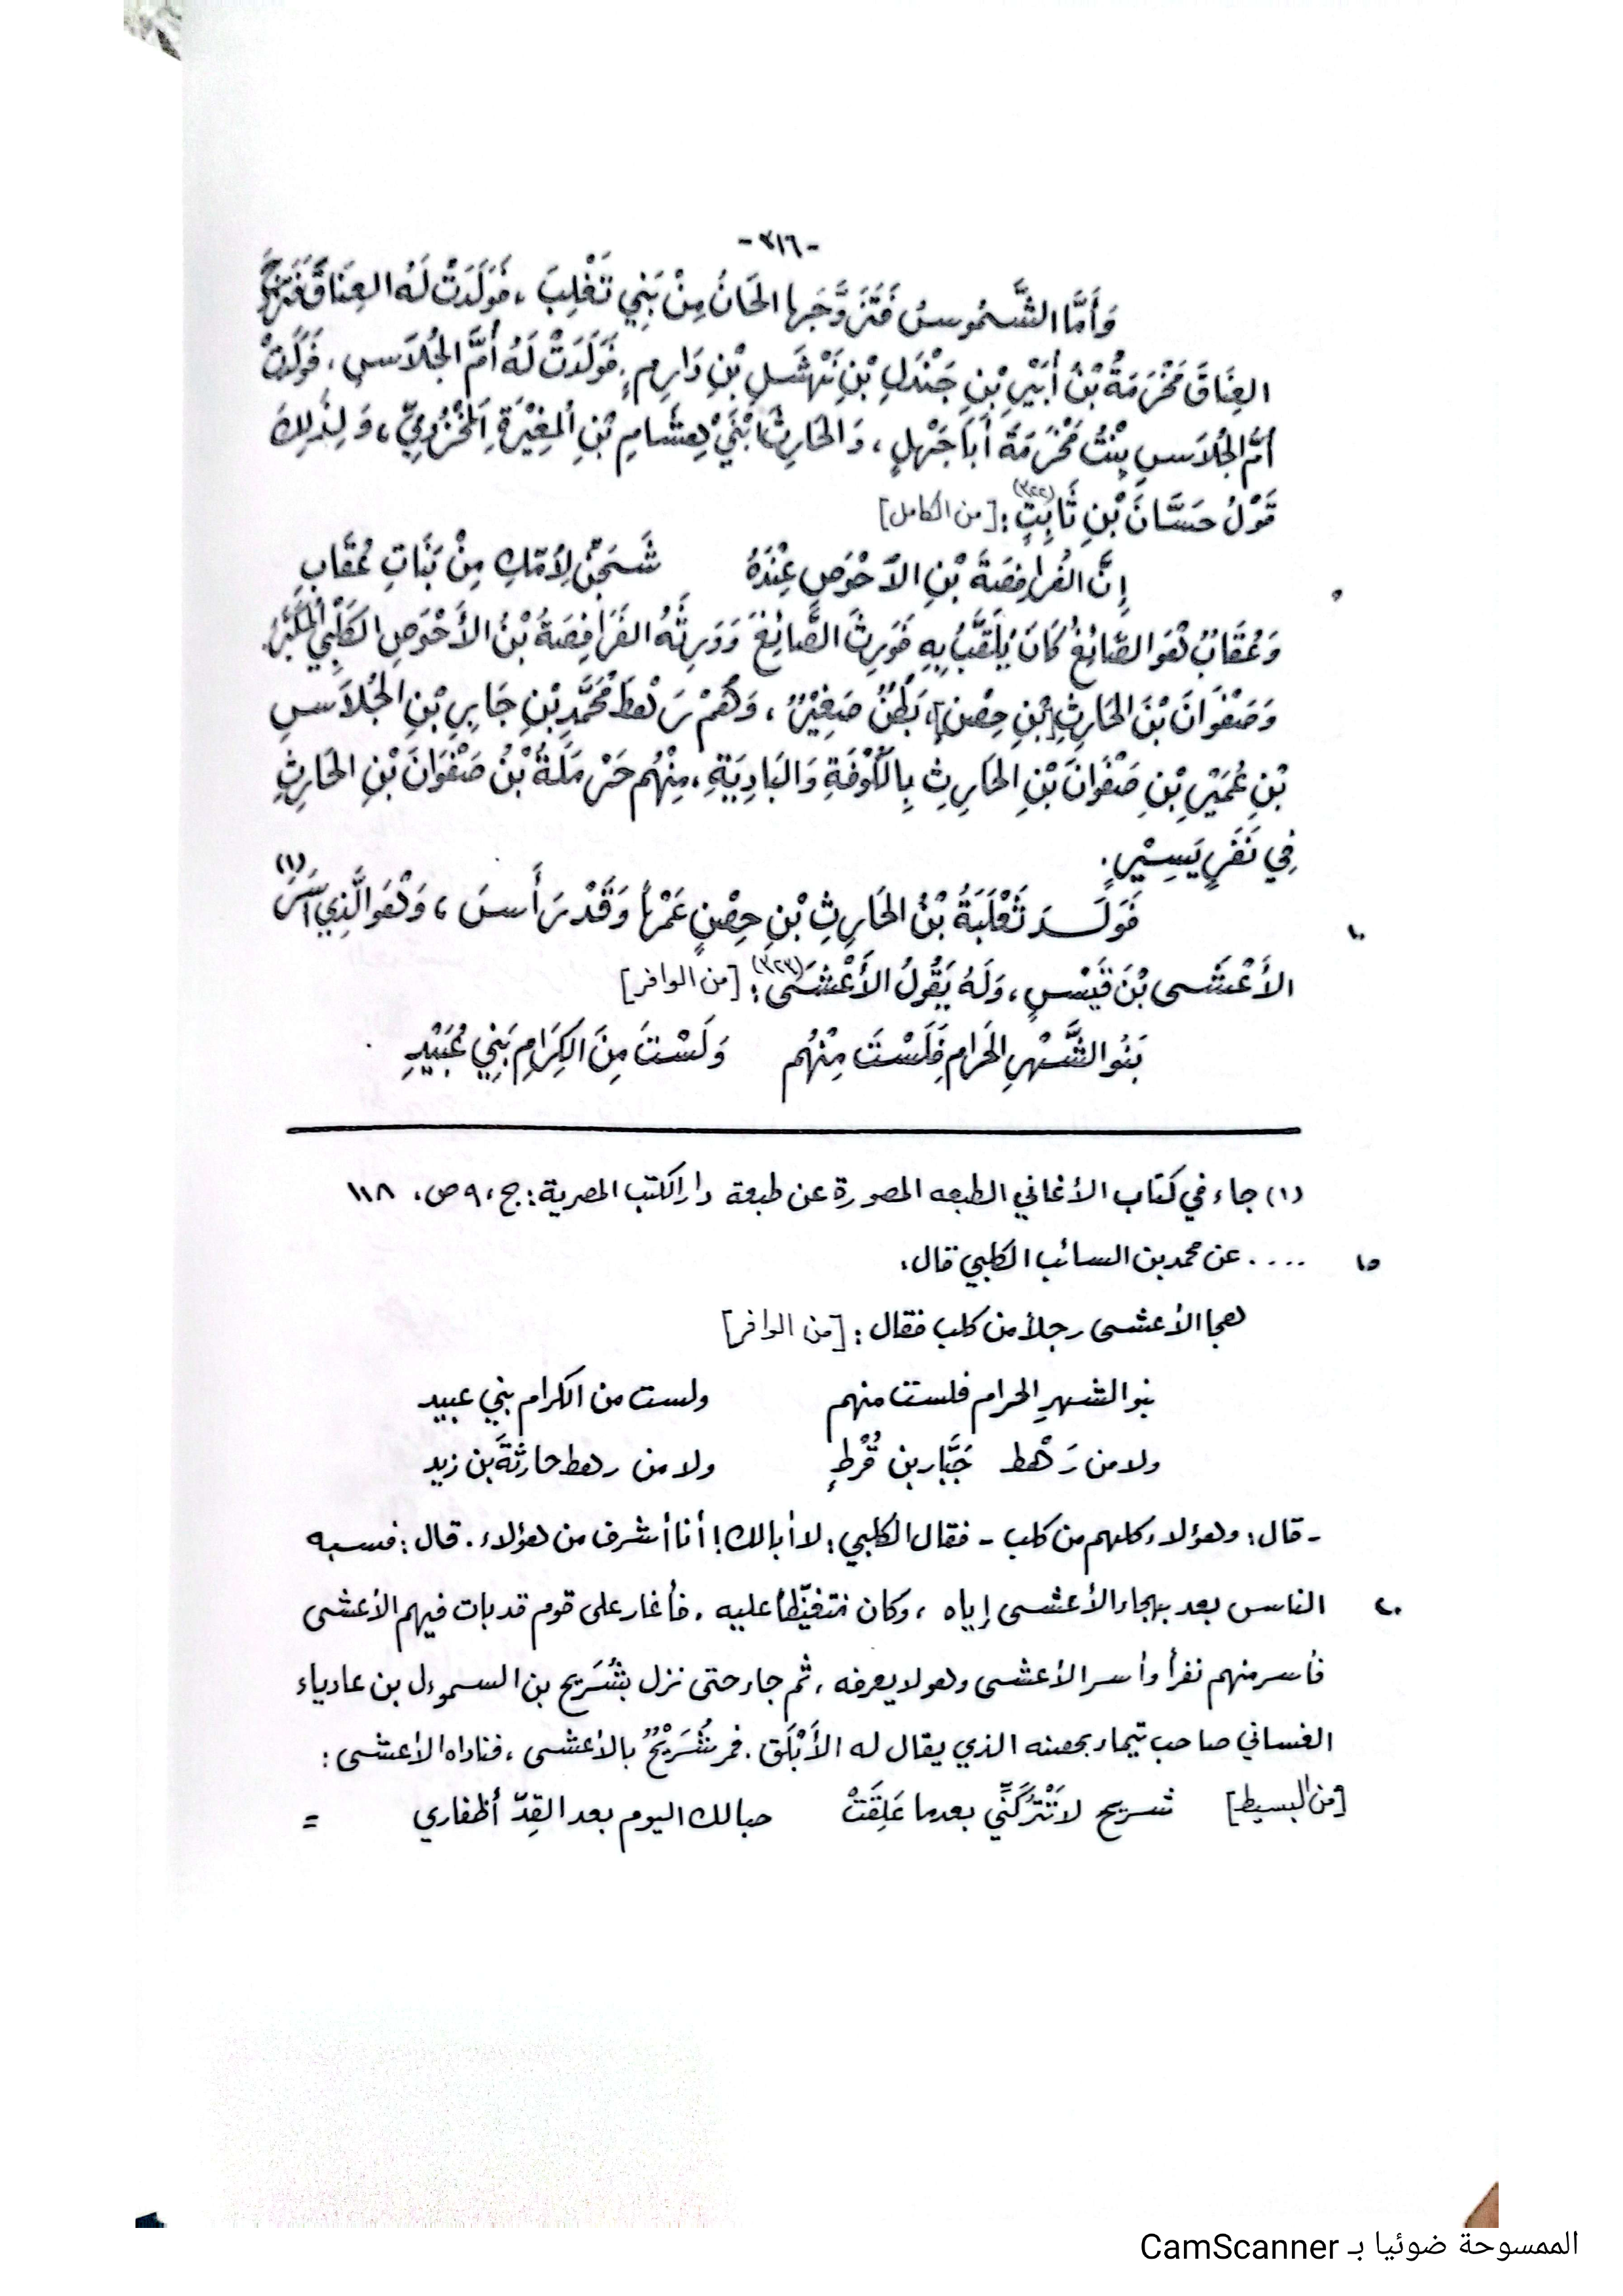 -٣١٦-
وَأَمَّا الشَّمُوسُ فَتَزَوَّجَها الحَانُ مِنْ بَنِي تَغْلِبَ ، فَوَلَدَتْ لَهُ العِنَاقَ فَتَزَوَّجَ
العِنَاقَ مَخْرَمَةُ بْنُ أُبَيْرِ بْنِ جَنْدَلِ بْنِ نَهْشَلِ بْنِ دَارِمٍ، فَوَلَدَتْ لَهُ أُمَّ الجُلاَسِ، فَوَلَدَتْ
أُمُّ الجُلاَسِ بِنْتُ مَخْرَمَةَ أَبَا جَهْلٍ ، وَالحَارِثَ ابْنَيْ هِشَامِ بْنِ المُغِيْرَةِ المَخْزُومِيِّ ، وَلِذَلِكَ
قَوْلُ حَسَّانَ بْنِ ثَابِتٍ (٣٢٢) : [من الكامل]
إِنَّ الفُرَافِصَةَ بْنِ الأَحْوَصِ عِنْدَهُ شَجَنٌ لِأُمِّكِ مِنْ بَنَاتِ عُقَابِ
٥
وَعُقَابُ هُوَ الصَّائِغُ كَانَ يُلَقَّبُ بِهِ فَوَرِثَ الصَّائِغَ وَوَرِثَهُ الفَرَافِصَةُ بْنُ الأَحْوَصِ الكَلْبِيُّ
وَصَفْوَانَ بْنَ الحَارِثِ [بْنِ حِصْنٍ]، بَطْنٌ صَغِيْرٌ ، وَهُمْ رَهْطُ مُحَمَّدِ بْنِ جَابِرِ بْنِ الجُلاَسِ
بْنِ عُمَيْرِ بْنِ صَفْوَانَ بْنِ الحَارِثِ بِالكُوْفَةِ وَالبَادِيَةِ ، مِنْهُم حَرْمَلَةُ بْنُ صَفْوَانَ بْنِ الحَارِثِ
فِي نَفَرٍ يَسِيْرٍ .
١٠ فَوَلَــدَ ثَعْلَبَةُ بْنُ الحَارِثِ بْنِ حِصْنٍ عَمْرًا وَقَدْ رَأَسَ ، وَهُوَ الَّذِي أَسَرَ (١)
الأَعْشَى بْنَ قَيْسٍ ، وَلَهُ يَقُولُ الأَعْشَى (٣٢٣) : [من الوافر]
بَنُو الشَّهْرِ الحَرامِ فَلَسْتَ مِنْهُم وَلَسْتَ مِنَ الكِرَامِ بَنِي عُبَيْدِ
(١) جاء في كتاب الأغاني الطبعه المصورة عن طبعة دار الكتب المصرية : ج ، ٩ ص ، ١١٨
١٥ .... عن محمد بن السائب الكلبي قال ،
هجا الأعشى رجلاً من كلب فقال : [من الوافر]
بنو الشهرِ الحرام فلست منهم ولست من الكرام بني عبيد
ولا من رَهْط جَبَّار بن قُرْطٍ ولا من رهط حارثةَ بن زيد
- قال : وهؤلاء كلهم من كلب - فقال الكلبي : لا أبا لك ! أنا أشرف من هؤلاء . قال : فسبه
٢٠ الناس بعد بهجاء الأعشى إياه ، وكان متغيّظاً عليه . فأغار على قوم قد بات فيهم الأعشى
فأسر منهم نفراً وأسر الأعشى وهو لا يعرفه ، ثم جاء حتى نزل بشُرَيح بن السموءل بن عادياء
الغساني صاحب تيماء بحصنه الذي يقال له الأَبْلَق . فمر شُرَيْحٌ بالأعشى ، فناداه الأعشى :
[من البسيط] شريح لاَ تَتْرُكَنِّي بعدما عَلِقَتْ حبالك اليوم بعد القِدّ أظفاري =
الممسوحة ضوئيا بـ CamScanner